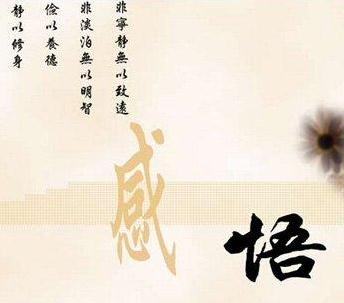 靜以修身
儉以養德
非淡泊無以明智
非寧靜無以致遠
感
悟